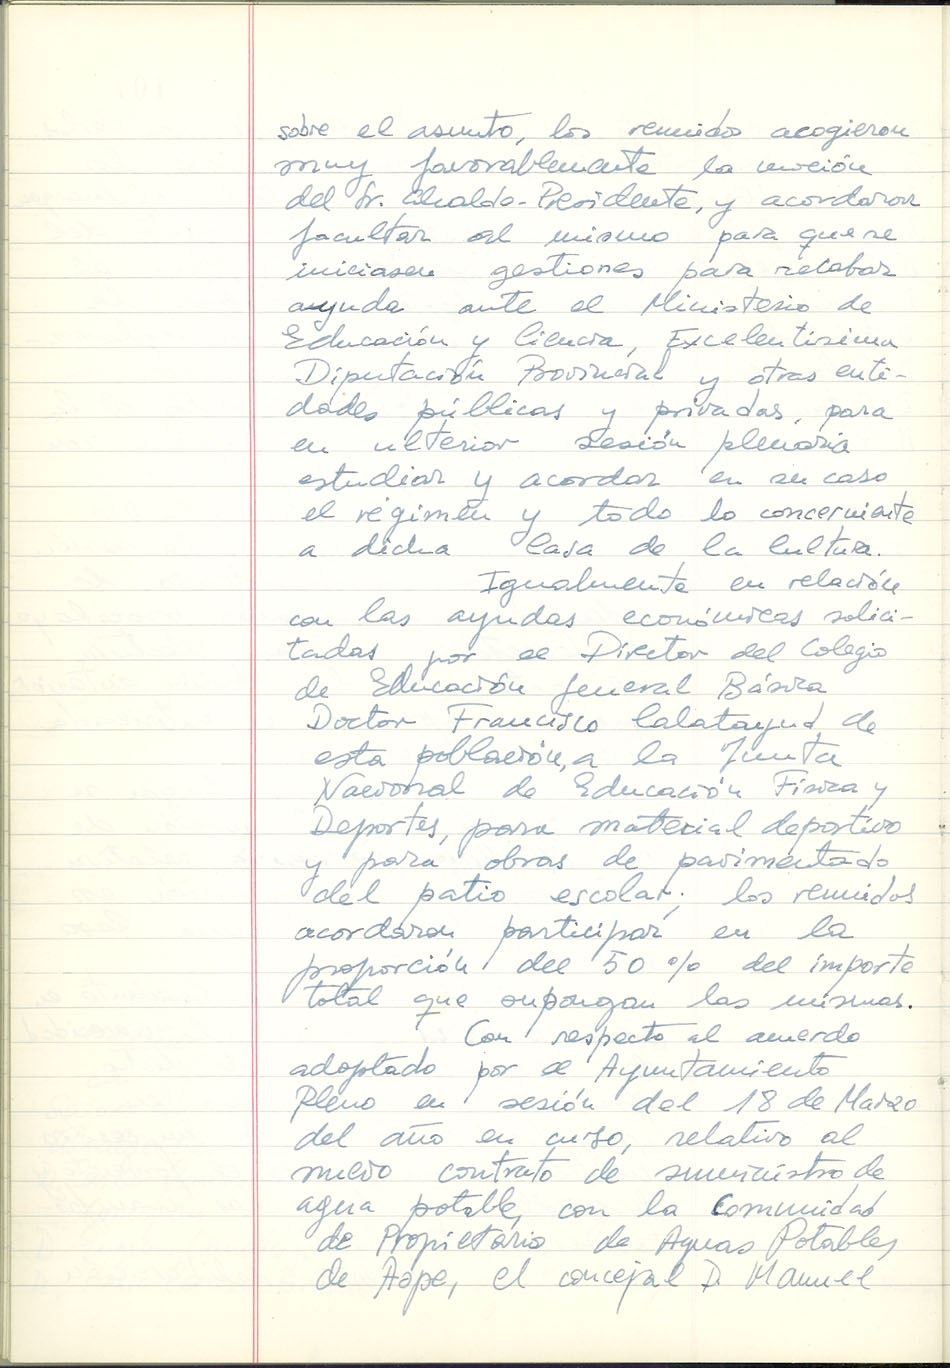 sobre el asunto, los reunidos acogieron
muy favorablemente la moción
del Sr. Alcalde-Presidente, y acordaron
facultar al mismo para que se
iniciasen gestiones para recabar
ayuda ante el Ministerio de
Educación y Ciencia, Excelentísima
Diputación Provincial y otras enti-
dades públicas y privadas, para
en ulterior sesión plenaria
estudiar y acordar en su caso
el régimen y todo lo concerniente
a dicha Casa de la Cultura.
Igualmente en relación
con las ayudas económicas solici-
tadas por el Director del Colegio
de Educación General Básica
Doctor Francisco Calatayud, de
esta población, a la Junta
Nacional de Educación Física y
Deportes, para material deportivo
y para obras de pavimentado
del patio escolar; los reunidos
acordaron participar en la
proporción del 50 % del importe
total que supongan las mismas.
Con respecto al acuerdo
adoptado por el Ayuntamiento
Pleno en sesión del 18 de Marzo
del año en curso, relativo al
nuevo contrato de suministro de
agua potable, con la Comunidad
de Propietario de Aguas Potables
de Aspe, el concejal D. Manuel